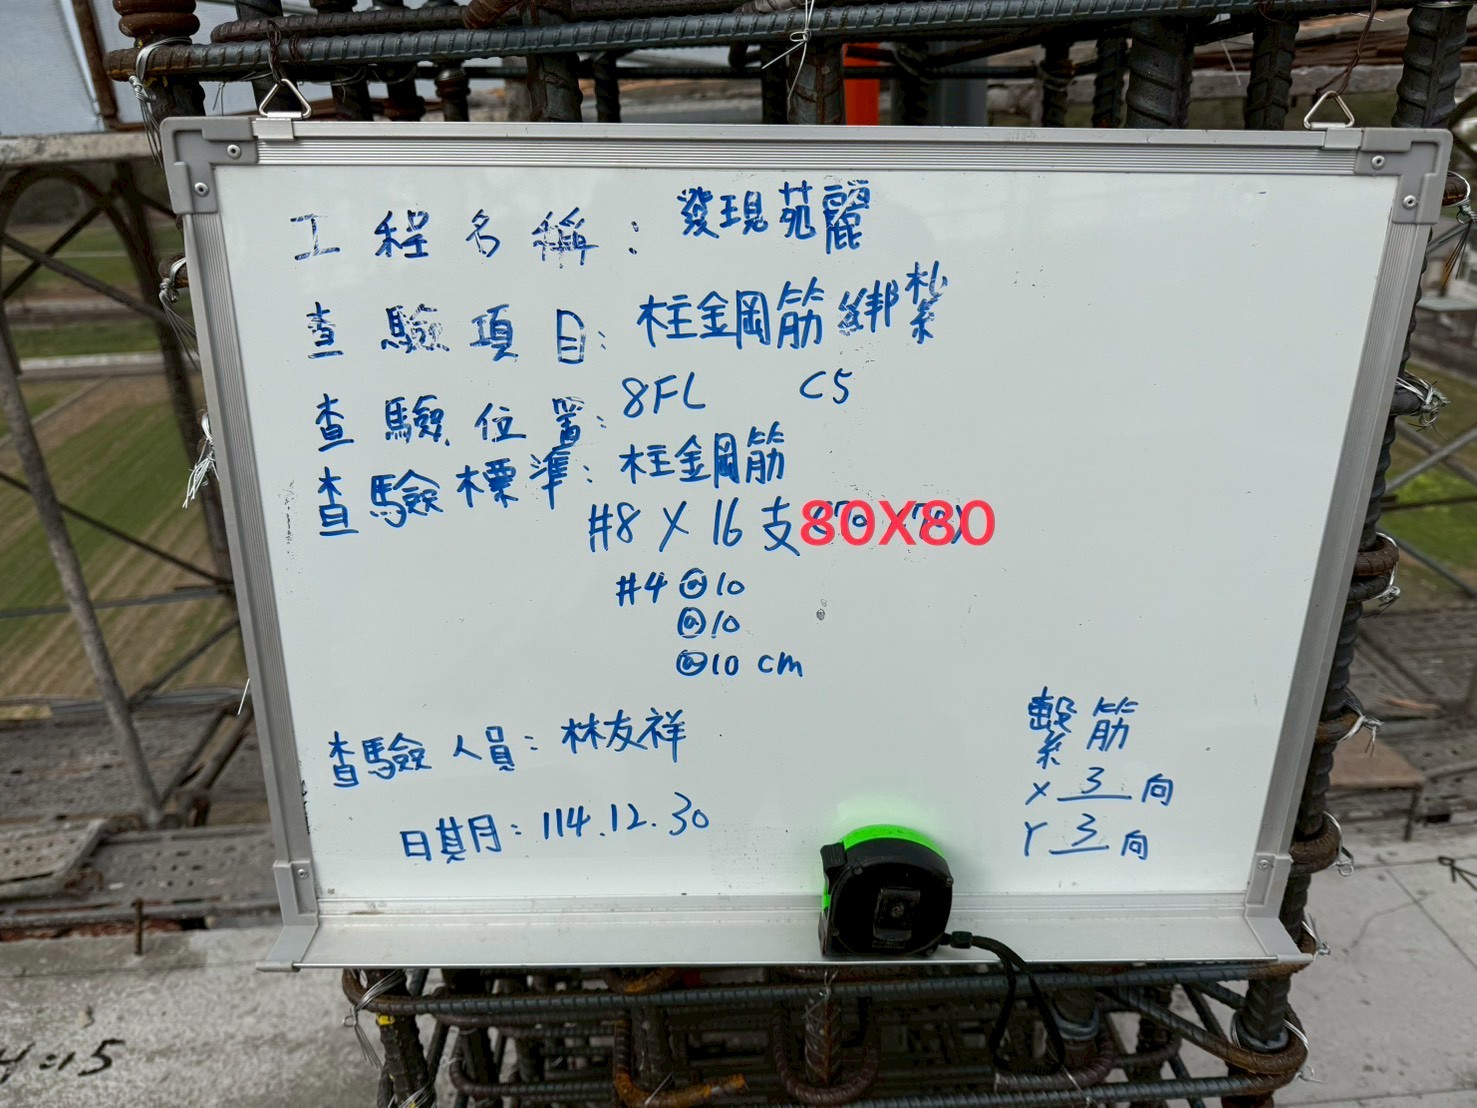 工程名稱：發現苑麗
查驗項目：柱鋼筋綁紮
查驗位置：8FL C5
查驗標準：柱鋼筋
#8 X 16支 80X80
#4 @10
@10
@10 cm
繫筋
X 3 向
Y 3 向
查驗人員：林友祥
日期：114.12.30